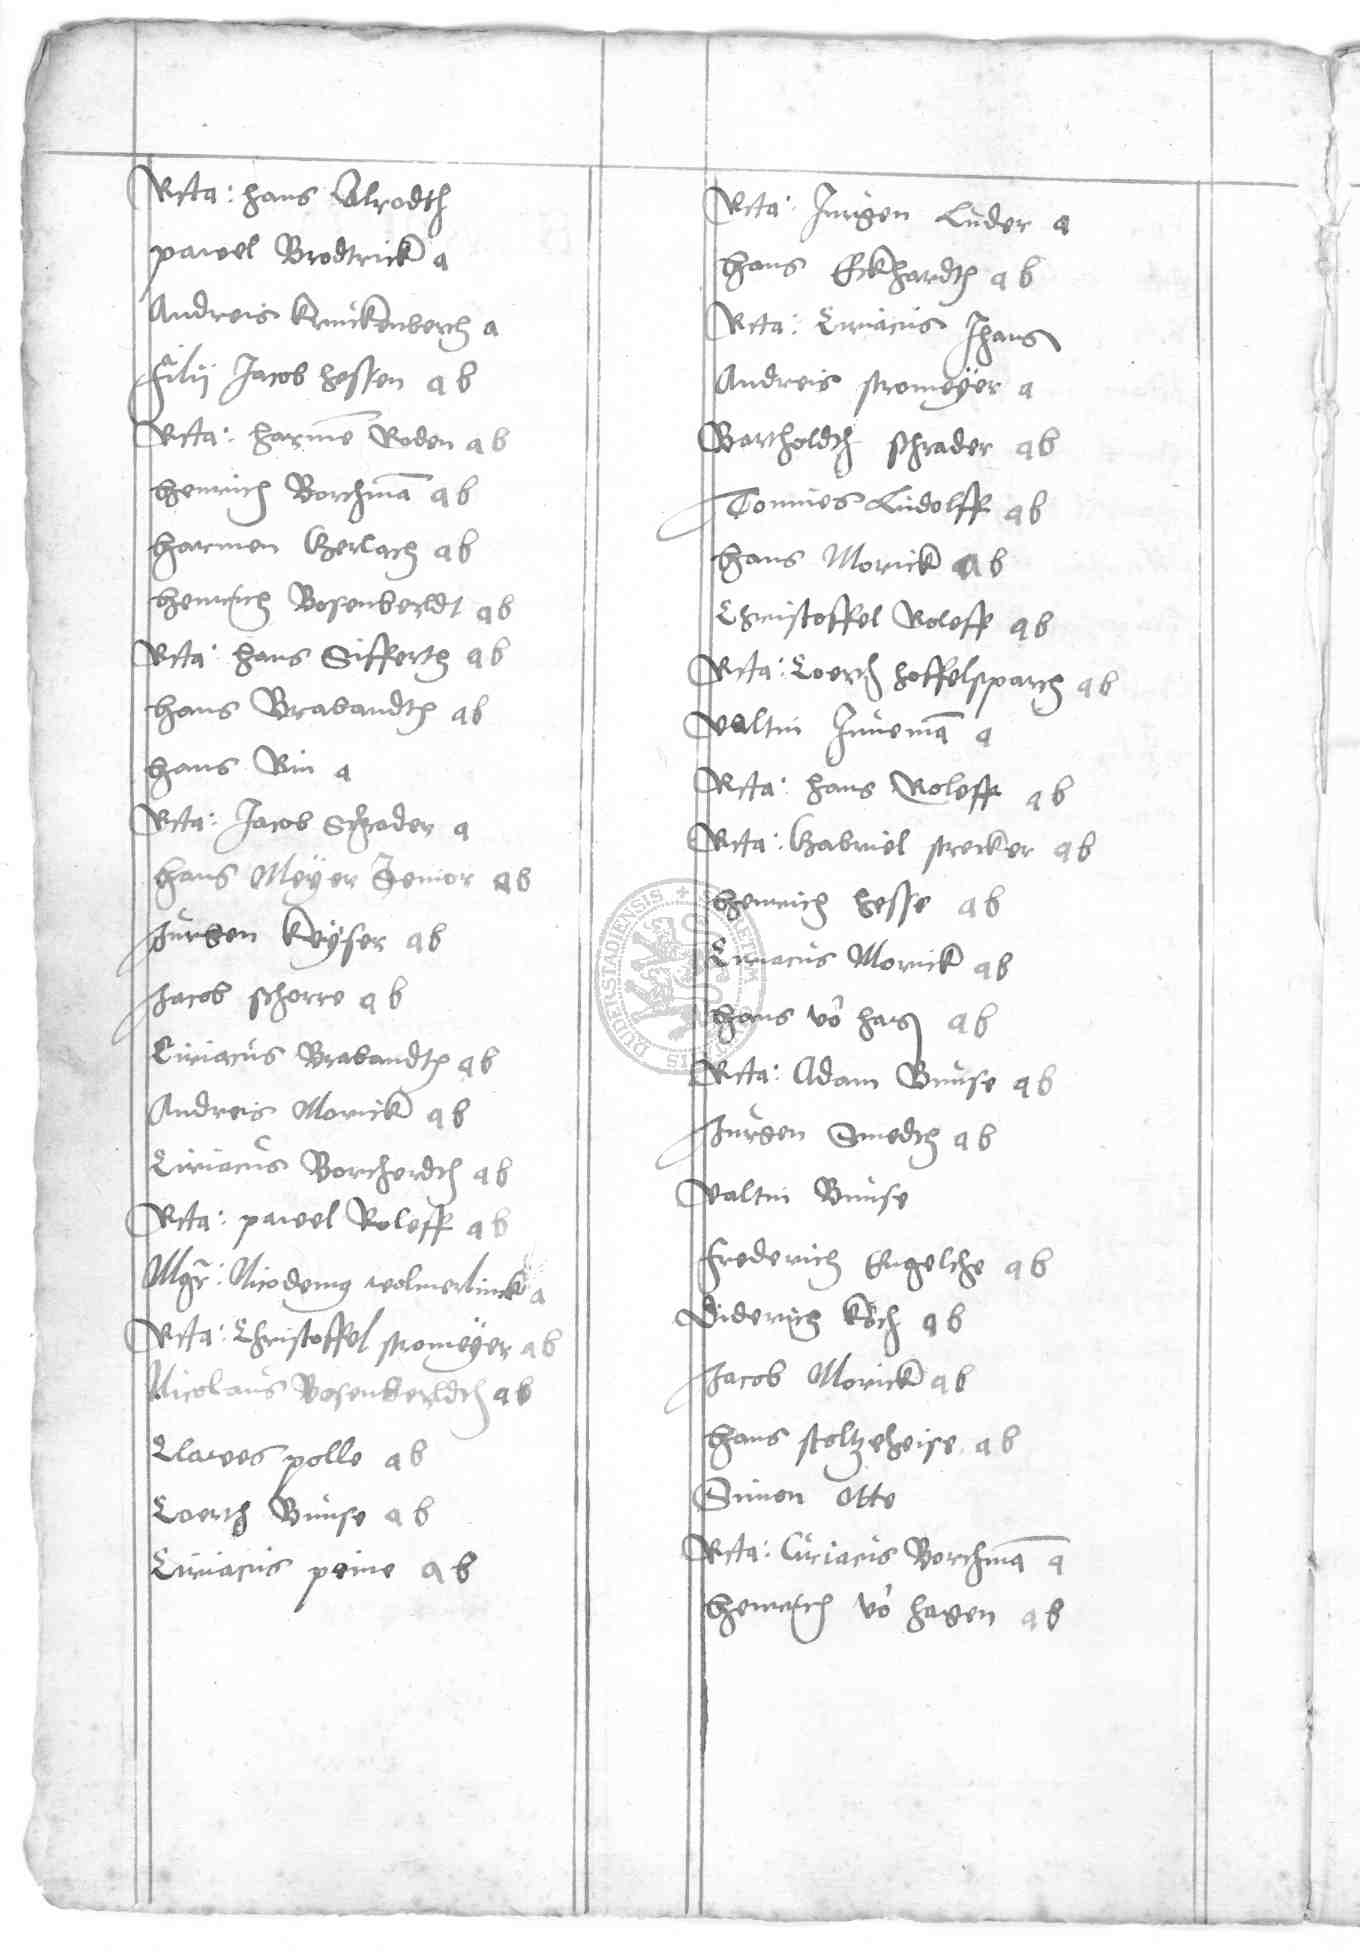 Rcta: hans Alrodth
pawel Brodtrick a
Andreis Kruckenberch a
filij Jacob hessen a b
Rcta: harmē Roden a b
henrich Borchmā a b
harmen Gerlach a b
henrich Bosenberldt a b
Rcta: hans Siffertth a b
hans Brabandth a b
hans Rin a
Rcta: Jacob Schrader a
hans Meÿer Senior a b
Jurgen Keÿser a b
Jacob schorre a b
Ciriacus Brabandth a b
Andreis Morick a b
Ciriacus Borcherdth a b
Rcta: pawel Roleff a b
Mgr: Nicodemus wolmerlinck a
Rcta: Christoffel stromeÿer a b
Nicolaus Bosenberldth a b
Clawes polle a b
Coerth Bunse a b
Ciriacus peine a b
Rcta: Jurgen Luder a
hans Eckhardth a b
Rcta: Ciriacus Jhans
Andreis stromeÿer a
Bartholdth schrader a b
Tonnies Ludolff a b
hans Morick a b
Christoffel Roleff a b
Rcta: Coerth hoffelsparch a b
Valtin Junemā a
Rcta: hans Roleff a b
Rcta: Gabriel strecker a b
henrich hesse a b
Ciriacus Morick a b
hans vō hagen a b
Rcta: Adam Bunse a b
Jurgen Smedth a b
Valtin Bunse
frederich Engelche a b
Diderich Koch a b
Jacob Morick a b
hans stoltzeheise a b
Simon Otte
Rcta: Ciriacus Borchmā a
henrich vō hagen a b